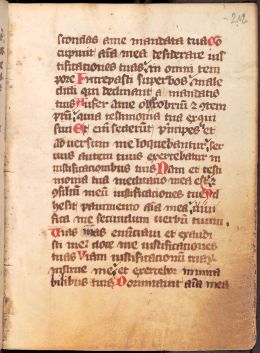 212
scondas a me mandata tua Con
cupiuit aīa mea desiderare ius
tificationes tuas in omni tem
pore Increpasti superbos male
dicti qui declinant a mandatis
tuis Aufer a me obprobriū et 9tem
ptū quia testimonia tua exqui
siui Et eni sederūt p'ncipes et
aduersum me loquebantur ser
uus autem tuus exercebatur in
iustificationibus tuis Nam et testi
monia tua meditatio mea est et
9silium meū iustificationes tue Ad
hesit pauimento aīa mea viui
fica me secundum verbū tuum
Vias meas enūciaui et exaudi
sti me doce me iustificationes
tuas Viam iustificationū tuarū
instrue me et exercebor in mira
bilibus tuis Dormitauit aīa mea